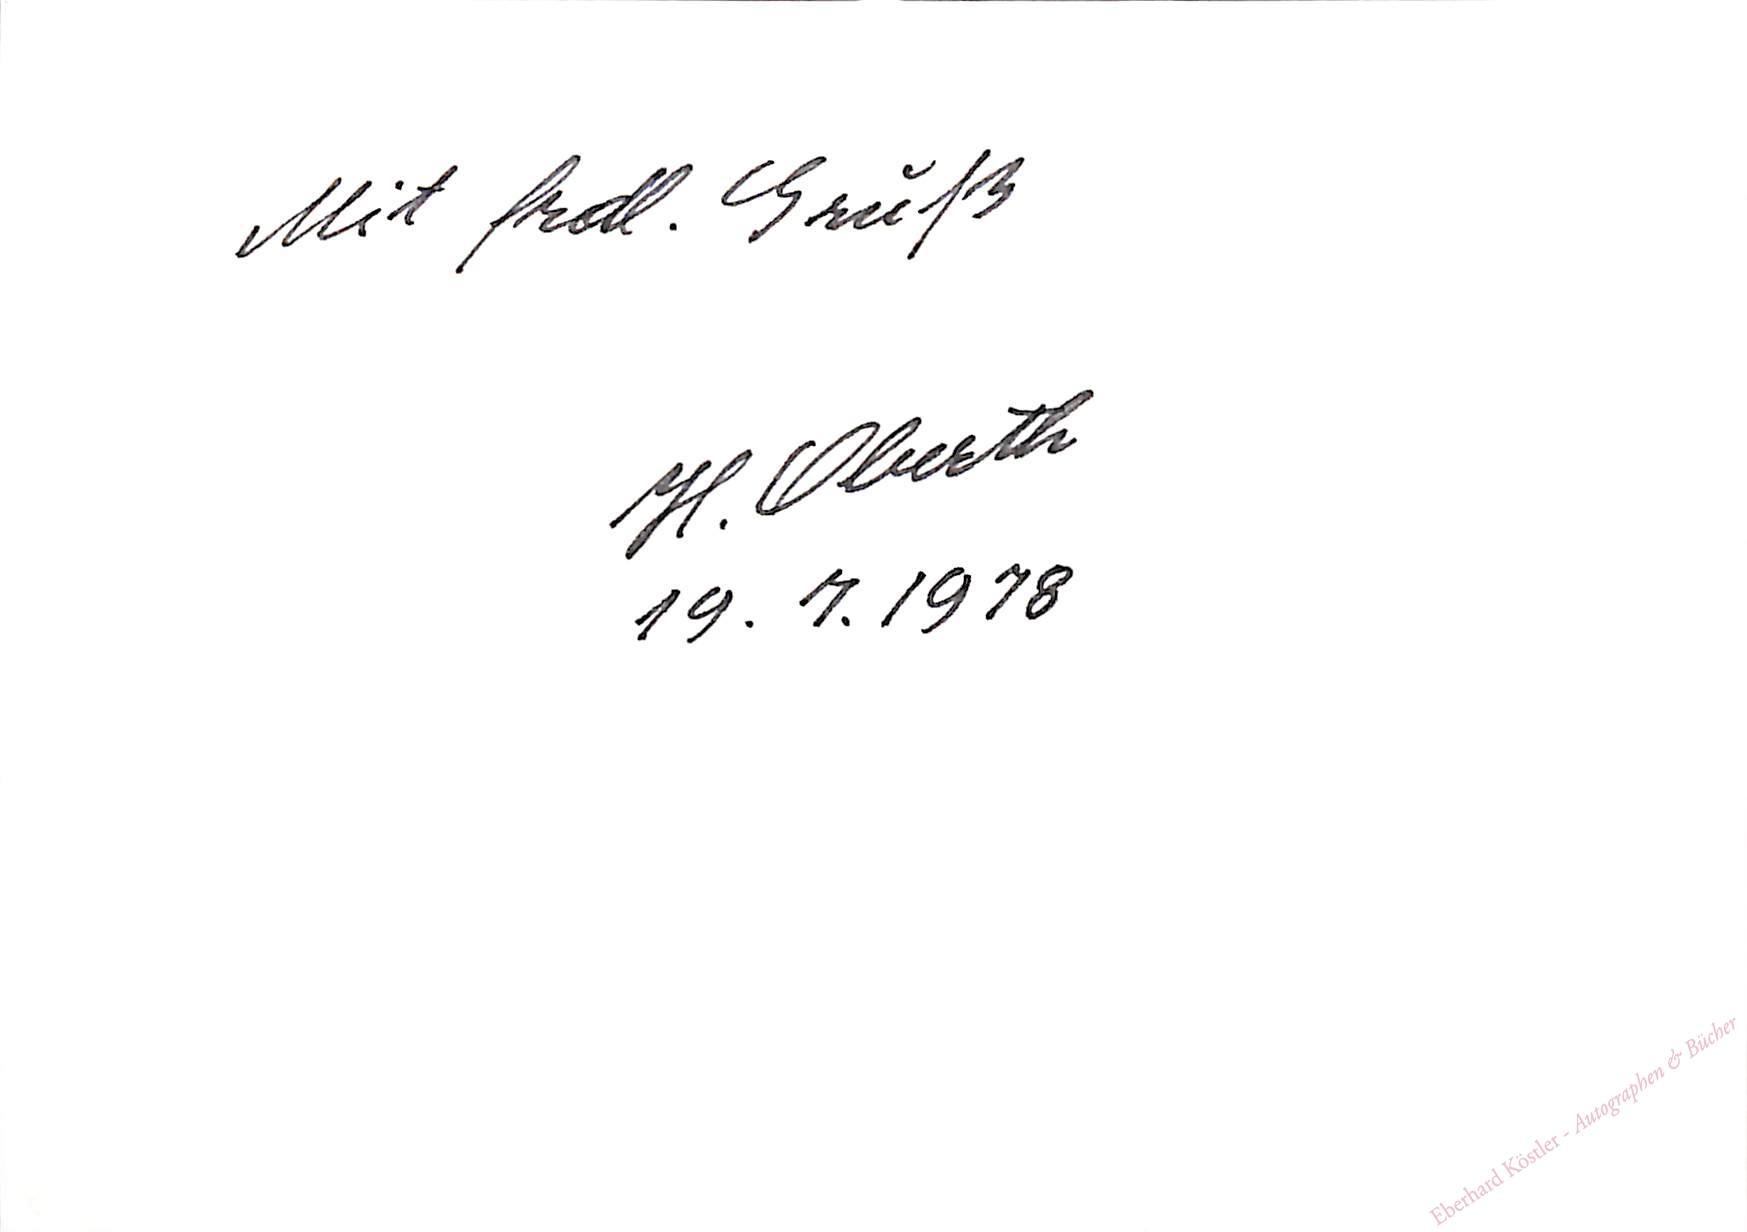 Mit frdl. Gruß
H. Oberth
19. 7. 1978
Eberhard Köstler - Autographen & Bücher